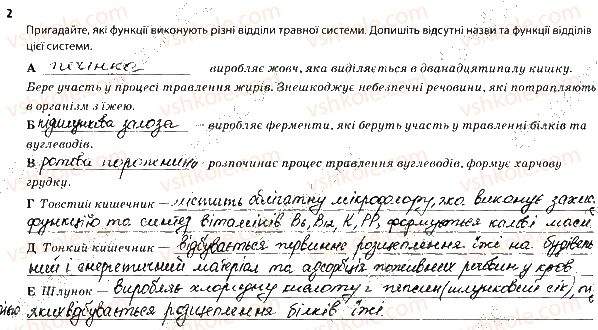 2
Пригадайте, які функції виконують різні відділи травної системи. Допишіть відсутні назви та функції відділів
цієї системи.
А печінка — виробляє жовч, яка виділяється в дванадцятипалу кишку.
Бере участь у процесі травлення жирів. Знешкоджує небезпечні речовини, які потрапляють
в організм з їжею.
Б підшлункова залоза — виробляє ферменти, які беруть участь у травленні білків та
вуглеводів.
В ротова порожнина — розпочинає процес травлення вуглеводів, формує харчову
грудку.
Г Товстий кишечник — містить облігатну мікрофлору, яка виконує захис.
функцією та синтез вітамінів В₆, В₁₂, К, РР, формуються калові маси
Д Тонкий кишечник — відбувається первинне розщеплення їжі на будівель
ний і енергетичний матеріал та адсорбція поживних речовин у кров
Е Шлунок — виробляє хлоридну кислоту і пепсин (шлунковий сік), під
дією яких відбувається розщеплення білків їжі